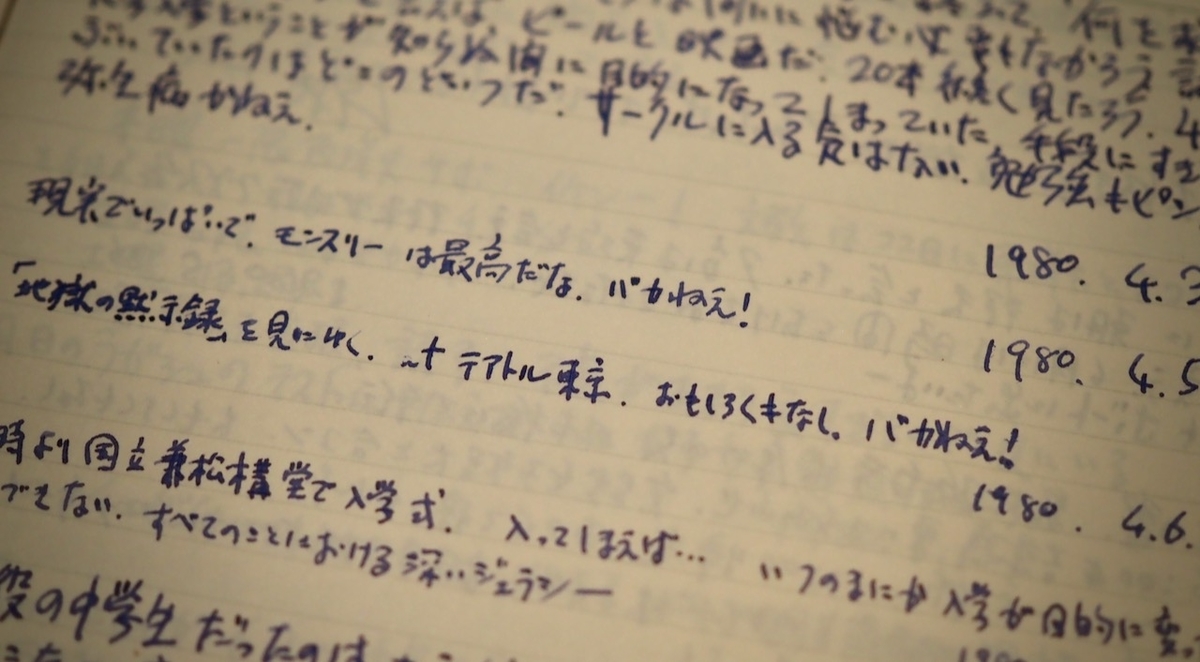 ビールと映画だ. 20本続く見たろう. 4
入学ということが知らぬ間に目的になってしまっていた. 手段にす
っていたのはどこのどいつだ. サークルに入る気はない. 勉強もピン
弥生病かねえ.
1980. 4.3
現実でいっぱいで. モンスリーは最高だな. バカねえ!
1980. 4.5
「地獄の黙示録」を見にゆく. at テアトル東京. おもしろくもなし. バカねえ!
1980. 4.6.
時より国立兼松構堂で入学式. 入ってしまえば... いつのまにか入学が目的に変
できない. すべてのことにおける深いジェラシー
の中学生だったのは